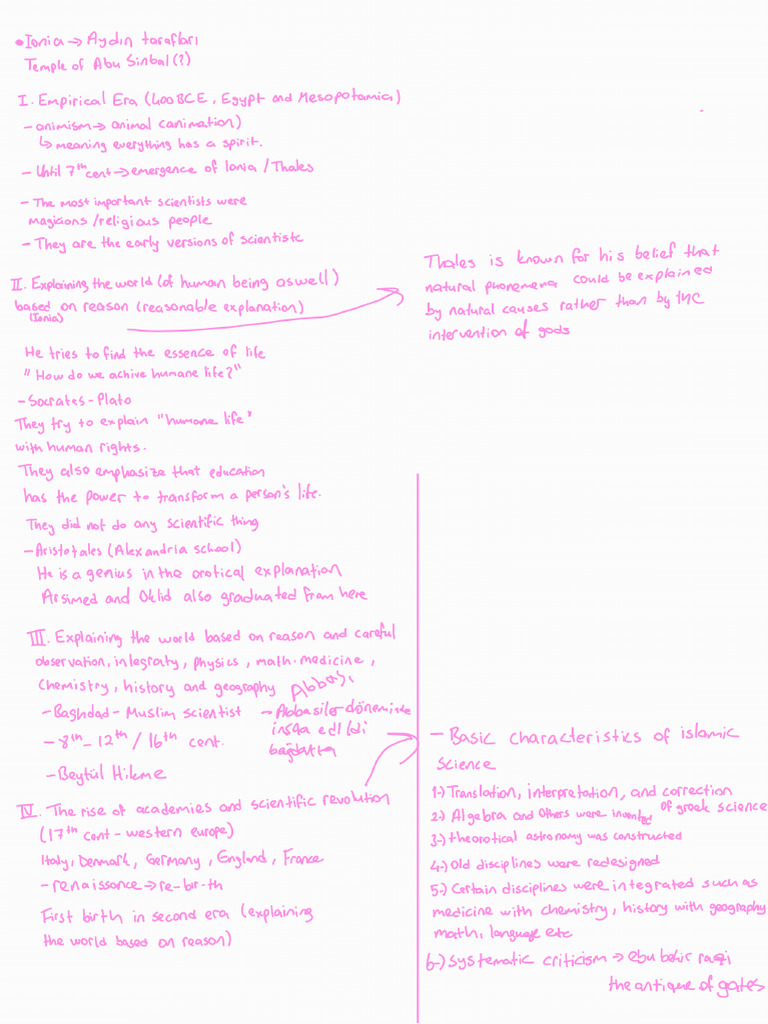 •Ionia → Aydın tarafları
Temple of Abu Sinbal (?)
I. Empirical Era (400BCE, Egypt and Mesopotamia)
- animism → animal canimation)
↳ meaning everything has a spirit.
- Until 7th cent → emergence of Ionia / Thales
- The most important scientists were
magicions / religious people
- They are the early versions of scientists
II. Explaining the world (of human being aswell)
based on reason (reasonable explanation)
(Ionia)
Thales is known for his belief that
natural phonemena could be explained
by natural causes rather than by the
intervention of gods
He tries to find the essence of life
"How do we achive humane life?"
- Socrates - Plato
They try to explain "humane life"
with human rights.
They also emphasize that education
has the power to transform a person's life.
They did not do any scientific thing
- Aristotales (Alexandria school)
He is a genius in the orotical explanation
Arsimed and Oklid also graduated from here
III. Explaining the world based on reason and careful
observation, integraty, physics, math. medicine,
Chemistry, history and geography Abbasi
- Baghdad - Muslim scientist
- 8th - 12th / 16th cent.
- Beytül Hikme
- Abbasiler döneminde
insaa edildi
bağdatta
IV. The rise of academies and scientific revolution
(17th cent - western europe)
Italy, Denmark, Germany, England, France
- renaissance → re-bir-th
First birth in second era (explaining
the world based on reason)
- Basic characteristics of islamic
science
1-) Translation, interpretation, and correction
of greek science
2-) Algebra and Others were invented
3-) theorotical astronomy was constructed
4-) Old disciplines were redesigned
5-) Certain disciplines were integrated such as
medicine with chemistry, history with geography
math, language etc
6-) systematic criticism → ebu bekir razi
the antique of gates